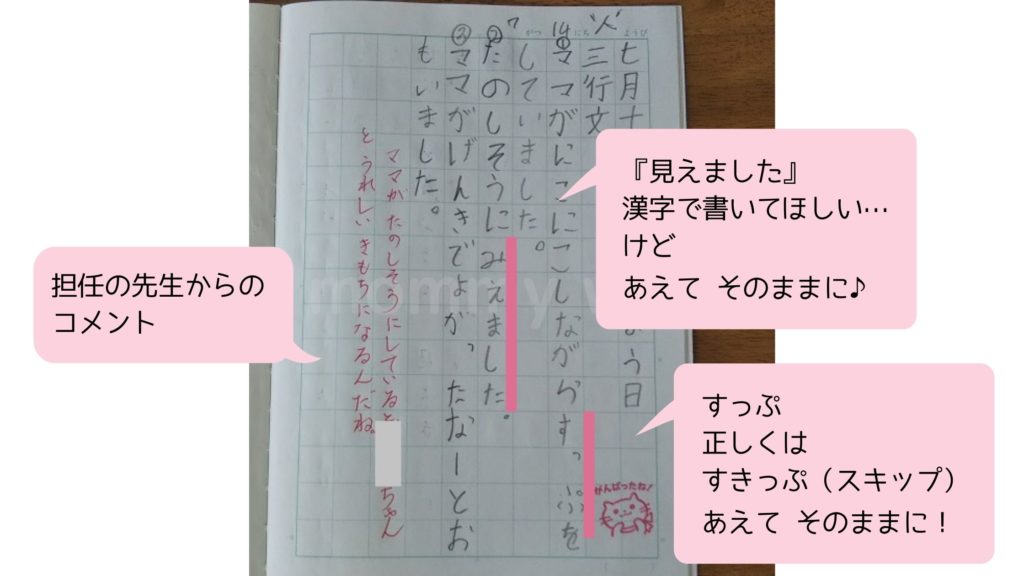 7 がつ 14 にち 火 ようび
七月十
う日
三行文
①ママがにこにこしながらすっぷを
していました。
②たのしそうにみえました。
③ママがげんきでよがったなーとお
もいました。
ママが たのしそうにしていると、
ちゃん
と うれしい きもちになるんだね。
がんばったね!
『見えました』
漢字で書いてほしい…
けど
あえて そのままに♪
担任の先生からの
コメント
すっぷ
正しくは
すきっぷ（スキップ）
あえて そのままに！